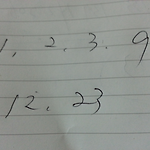 1, 2. 3. 9
12. 23